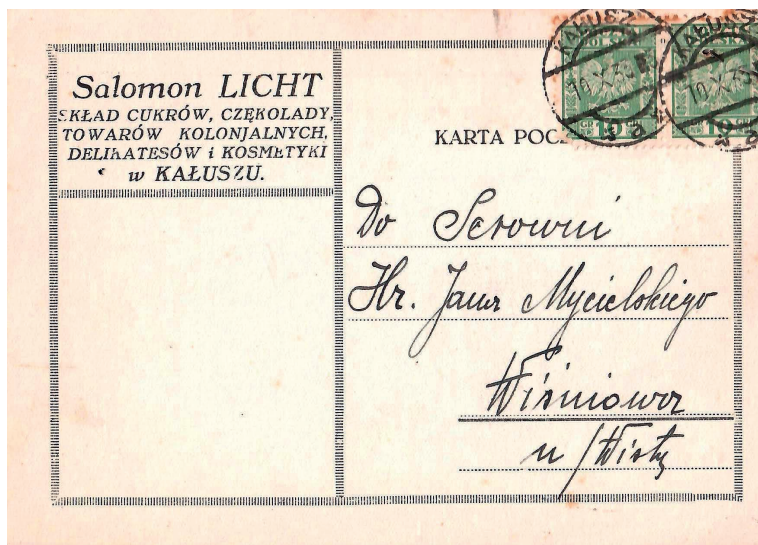 Salomon LICHT
SKŁAD CUKRÓW, CZĘKOLADY,
TOWARÓW KOLONJALNYCH,
DELIKATESÓW i KOSMETYKI
w KAŁUSZU.
KAŁUSZ
KAŁUSZ
10.X.3
10.X.3
POLSKA
10
KARTA POCZ
Do Serowni
Hr. Jana Mycielskiego
Wiśniowa
n/Wisłą